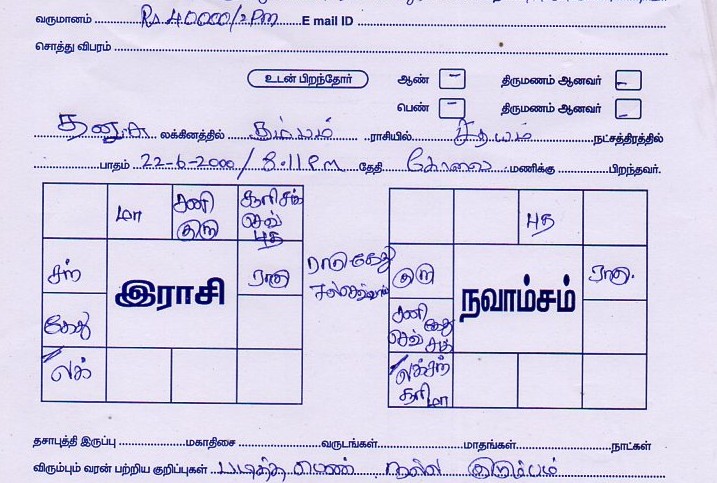 வருமானம் Rs 40000/= Pm E mail ID
சொத்து விபரம்
உடன் பிறந்தோர் ஆண் - திருமணம் ஆனவர் -
பெண் - திருமணம் ஆனவர் -
தனுசு லக்கினத்தில் கும்பம் ராசியில் சதயம் நட்சத்திரத்தில்
பாதம் 22-6-2000 / 8.11 Pm தேதி கோவை மணிக்கு பிறந்தவர்.
மா சனி குரு சூரி சுக் செவ் புத
சந் இராசி ராகு
கேது
லக்
ராகு கேது
புத
குரு நவாம்சம் ராகு.
சனி செவ் கேது சுக்
லக் சந் சூரி மா
தசாபுத்தி இருப்பு மகாதிசை வருடங்கள் மாதங்கள் நாட்கள்
விரும்பும் வரன் பற்றிய குறிப்புகள் படித்த பெண் நல்ல குடும்பம்